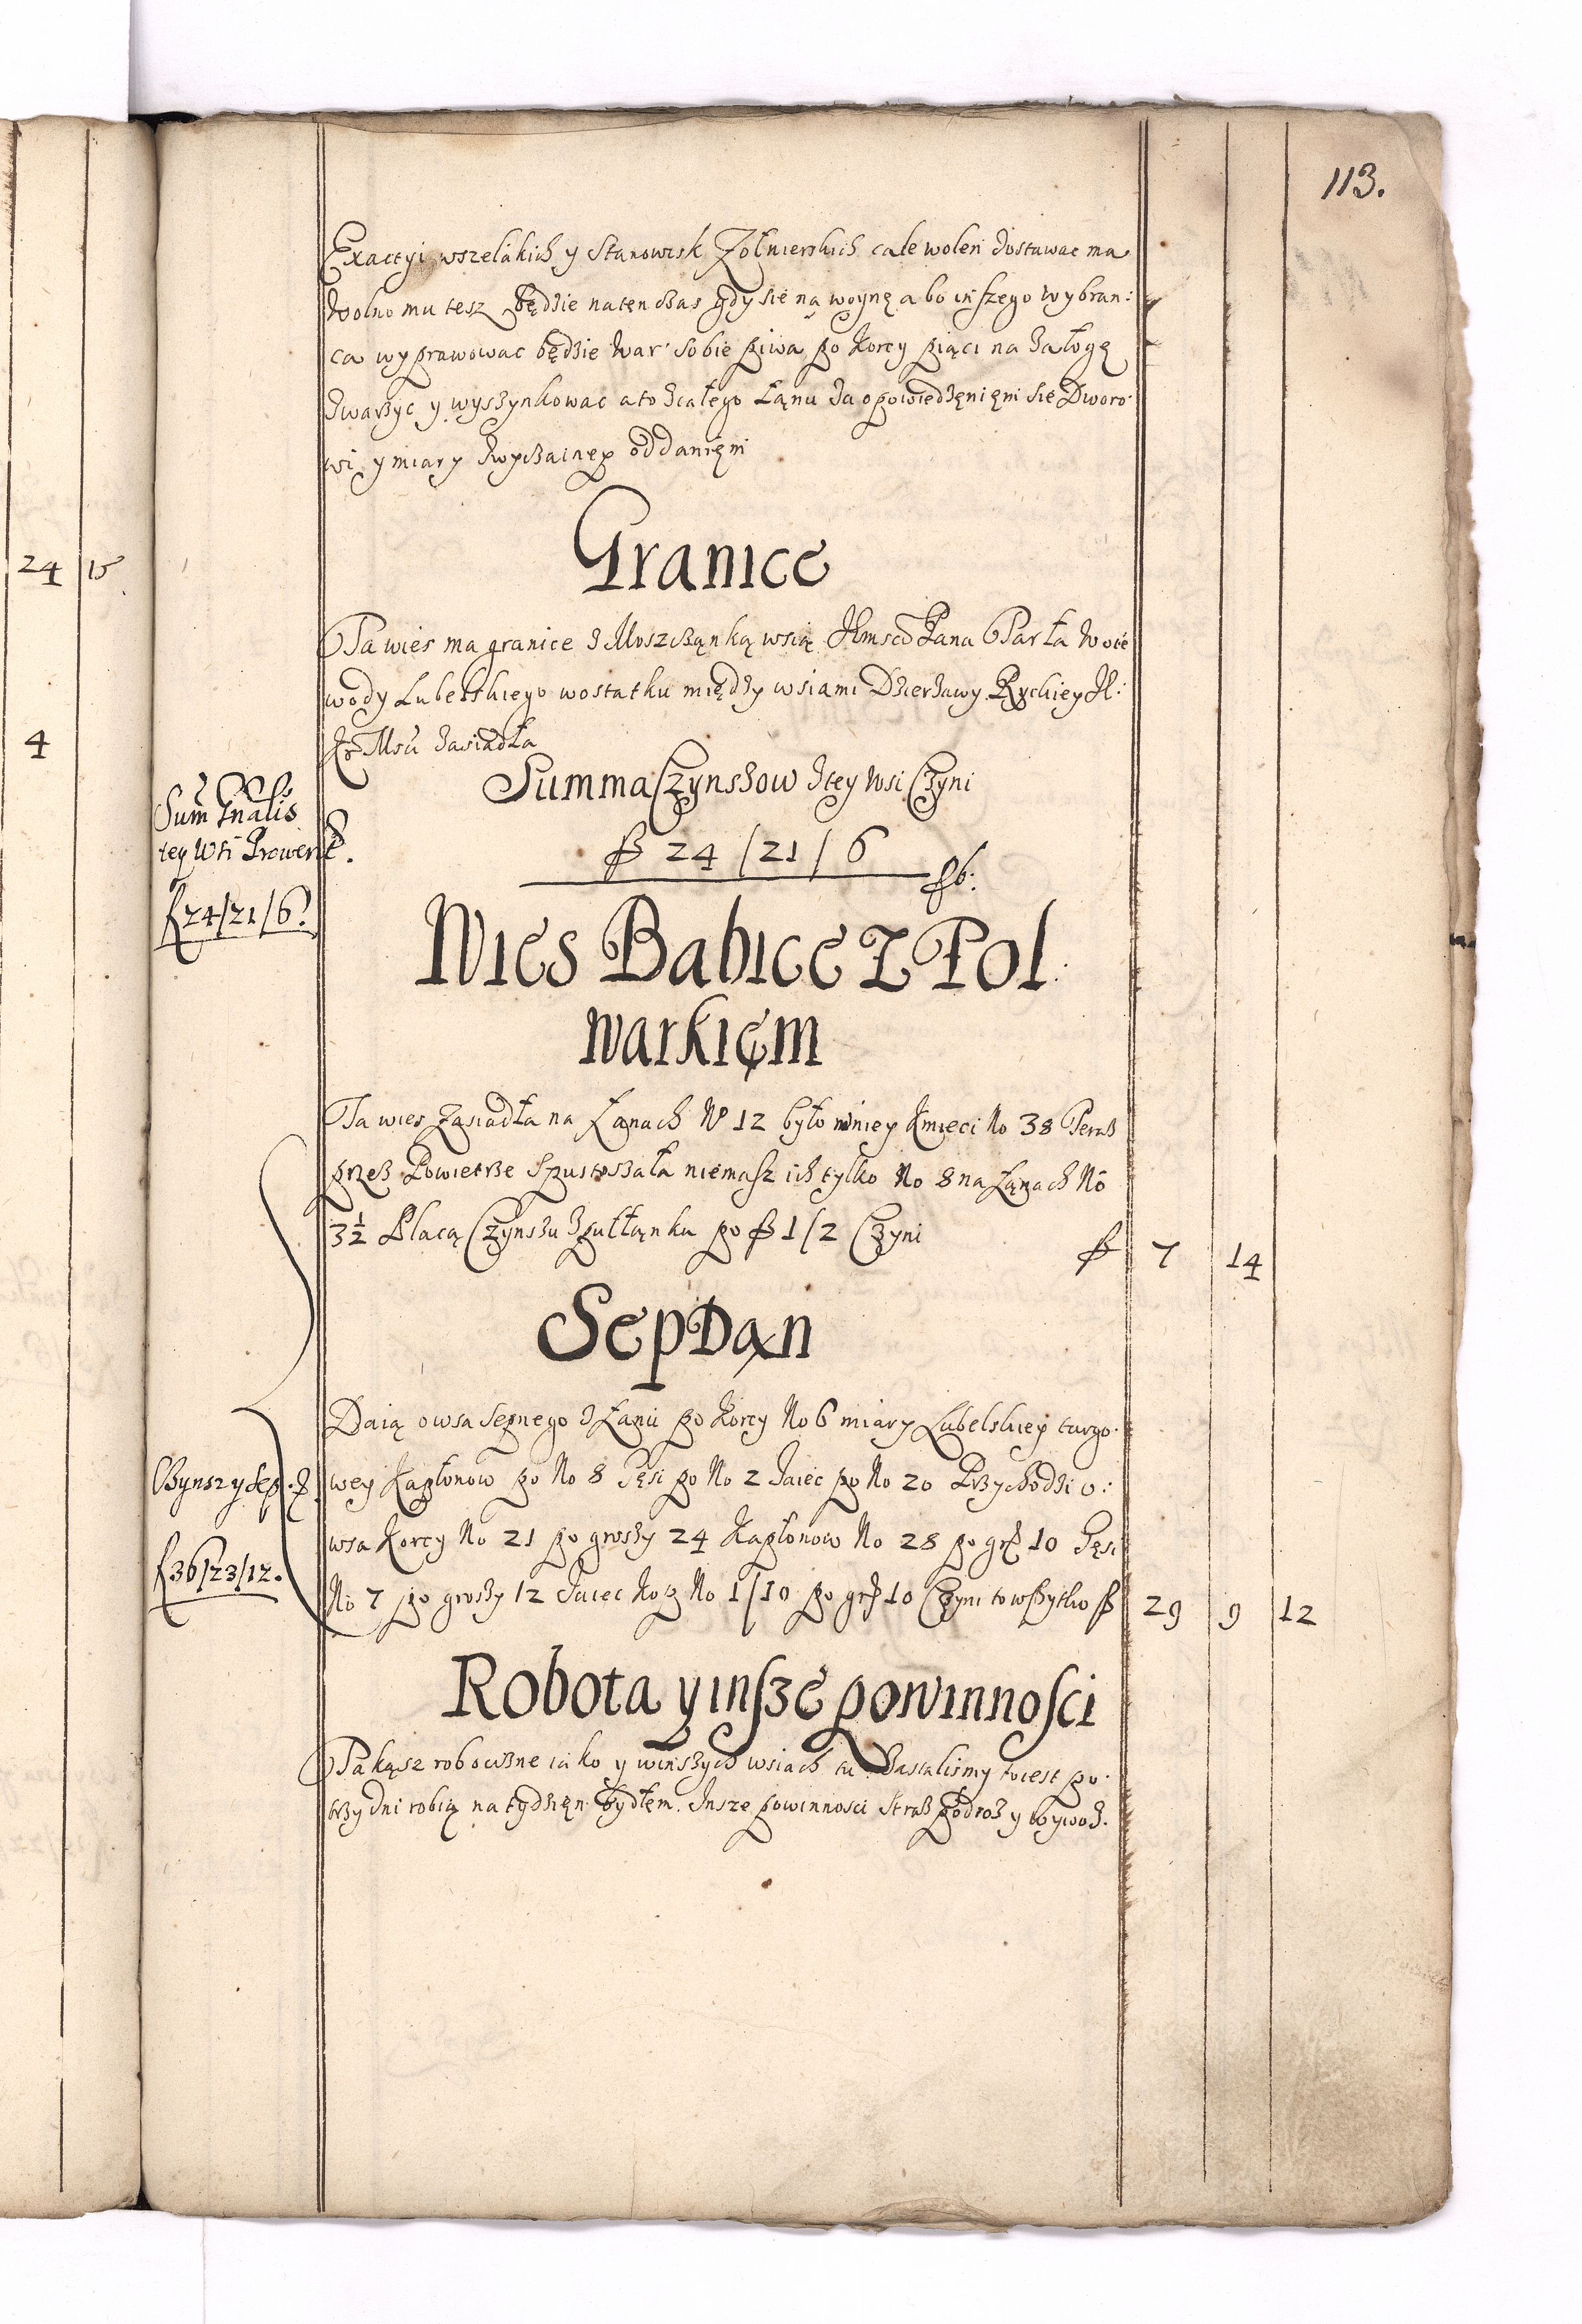 113.
Exactyi wszelákich y Stanowisk Zołnierskich cale wolen dostawac ma
Wolno mu tesz będzie natęnczas gdy sie ną woynę abo inszego wybran:
ca wyprawowac będzie War Sobie piwa po Korcy piąci na załogę
zwarzyc y wyszynkowac a to zcałego Łąnu za opowiedzęnięm sie Dworo
wi y miary zwyczainey oddanięm
Granice
Ta wies ma granice z Moszcząnką wsią Jłmscō Pana Parła Woie
wody Lubelskiego wostatku między wsiami Dzierzawy Ryckiey
zasiadła
Summa Czynszow ztey wsi Czyni
fl 24 / 21 / 6
Sum̄
tey Wsi Prowent.
f 24/21/6.
Wies Babice Z Fol
warkięm
Ta wies zasiadła na Łąnach No 12 było w niey Kmieci No 38 Teraz
przez Powietrze Spustoszała niemasz ich tylko No 8 na Łąnach No
3½ Płacą Czynszu zpułłąnku po fl 1/2 Czyni fl 7 14
Sep Dąn
Daią owsa sepnego z Łanu po Korcy No 6 miary Lubelskiey targo
wey Kapłonow po No 8 Gęsi po No 2 Jaiec po No 20 Przychodzi o:
wsa Korcy No 21 po groszy 24 Kapłonow No 28 po gr 10 Gęsi
No 7 po groszy 12 Jaiec Kop No 1/10 po gr 10 Czyni to wszytko fl 29 9 12
Czynszy Sep.
f 36/23/12.
Robota y insze powinnosci
Takąsz roboczne iako y w inszych wsiach tu zastalismy to iest po
trzy dni robią na tydzięn bydłem. Insze powinnosci Straz podroz y wywoz.
24 15
4